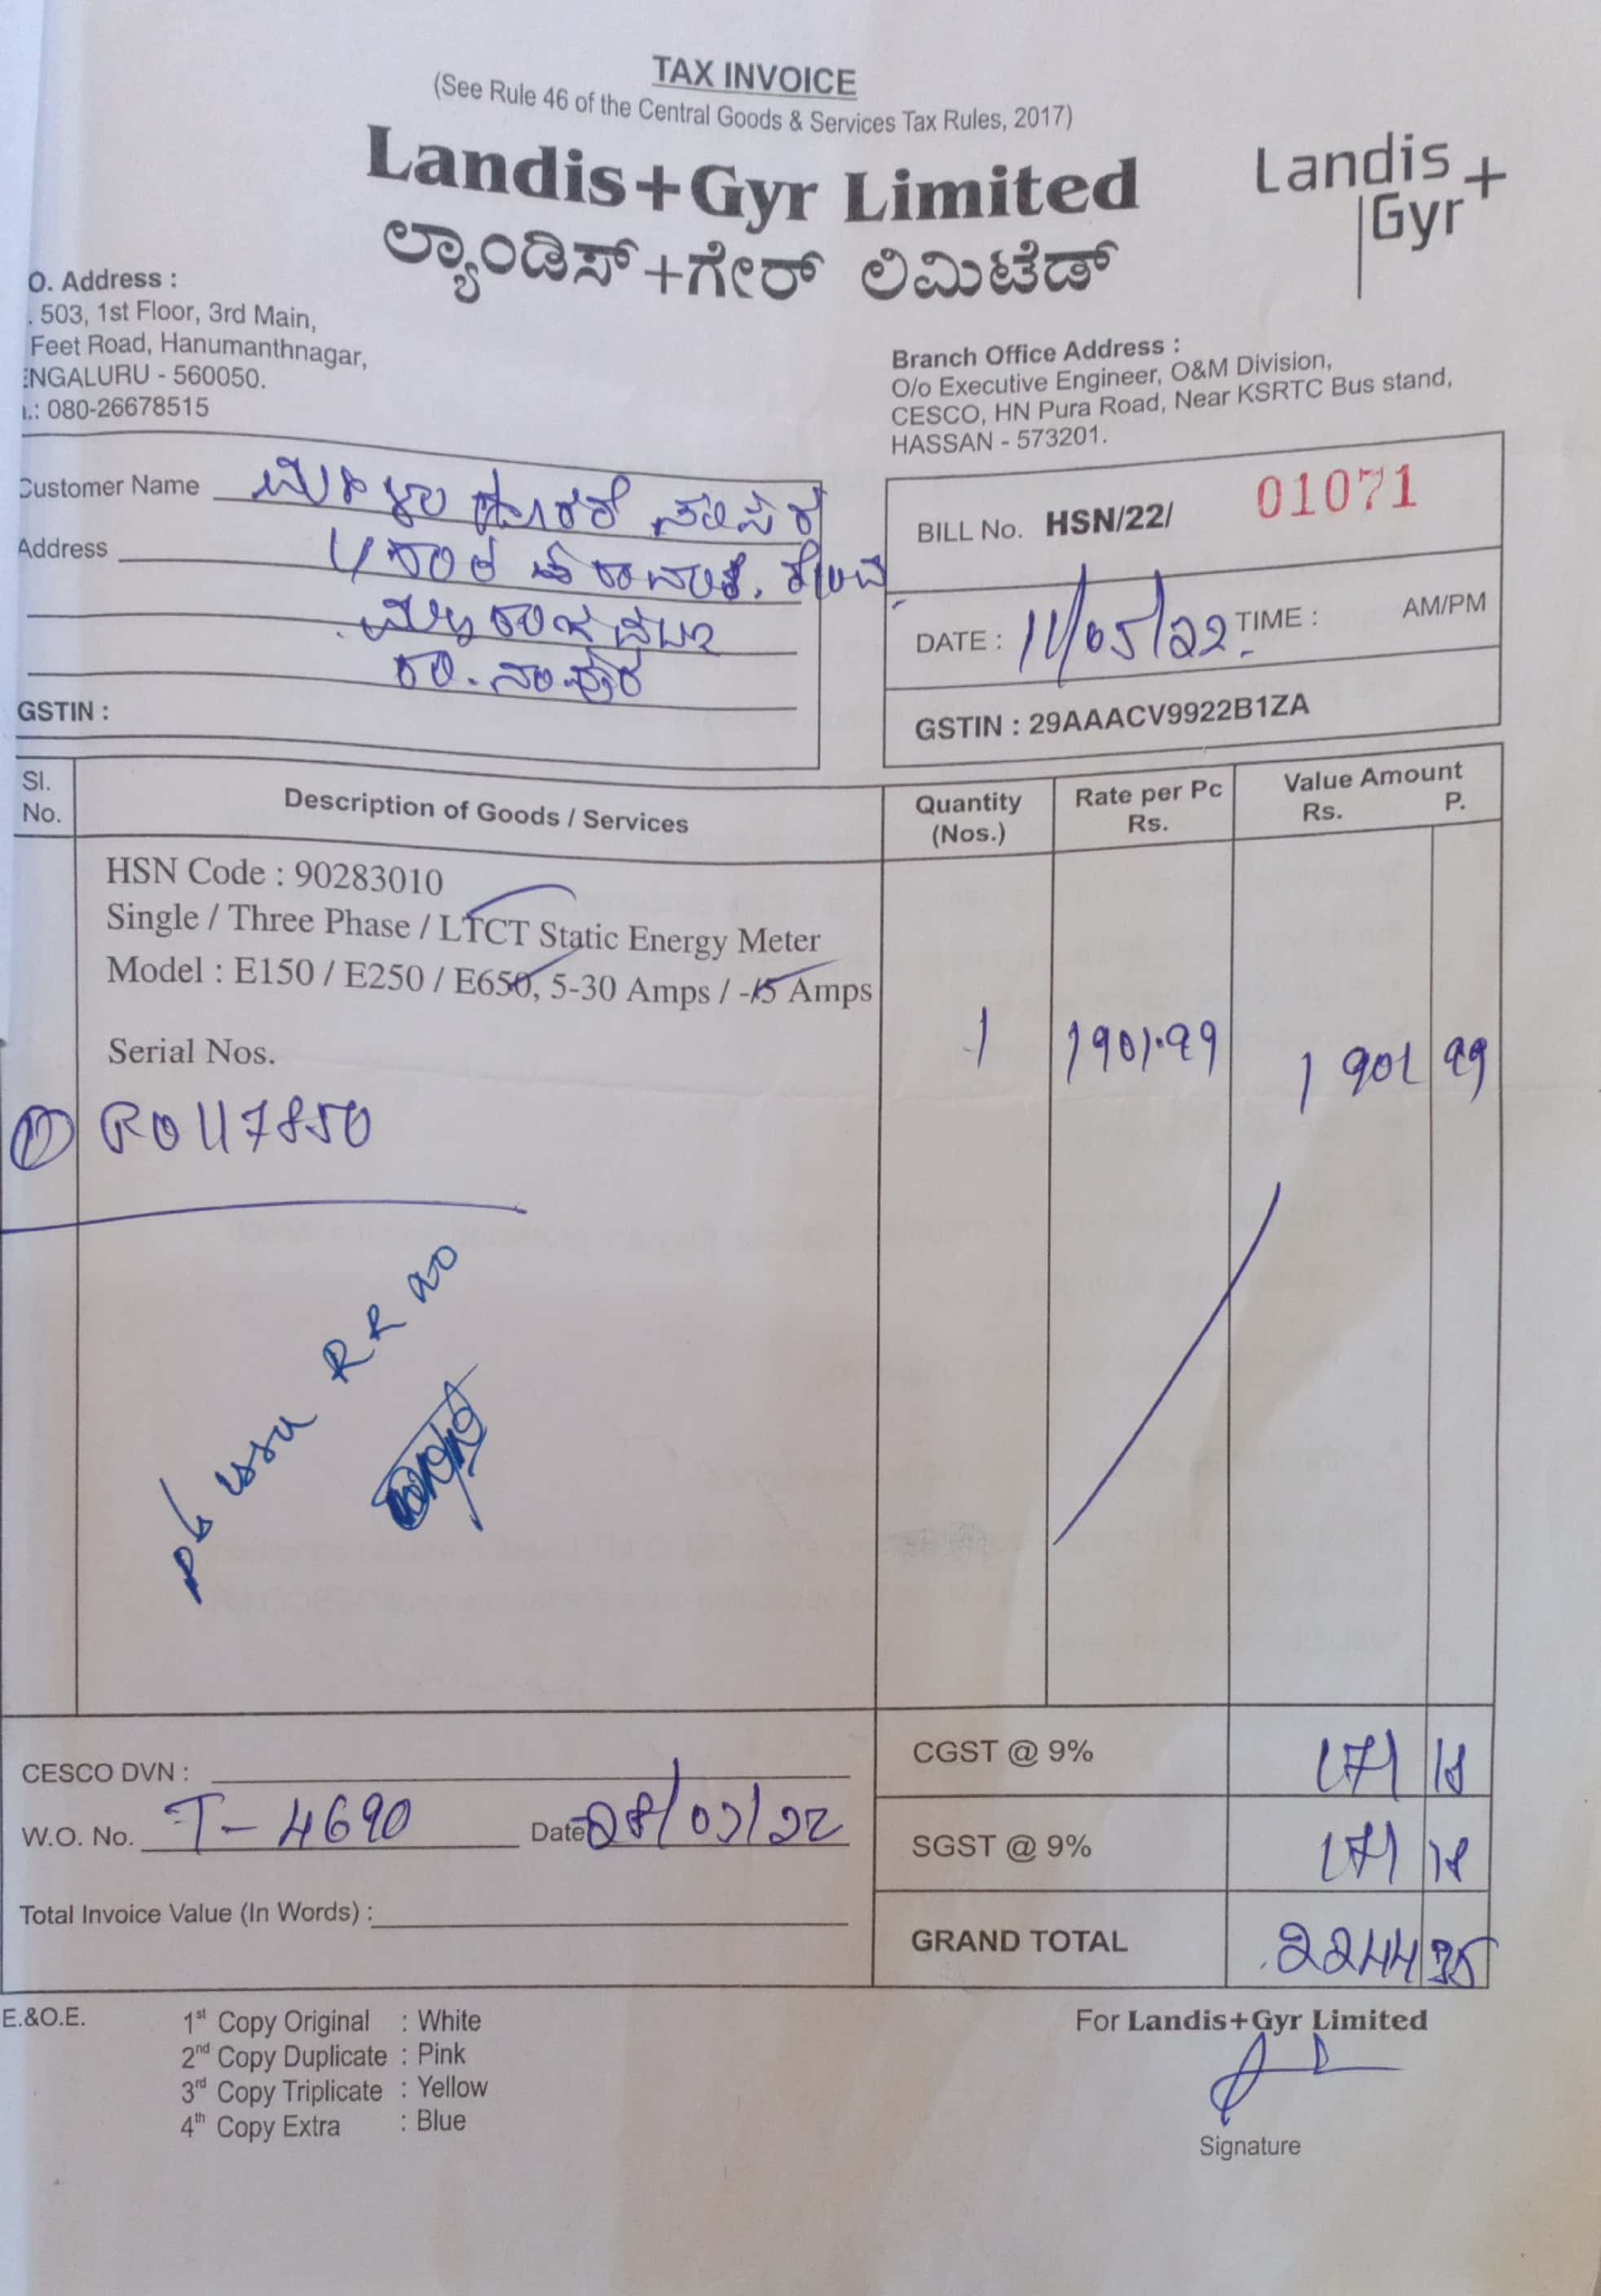 TAX INVOICE
(See Rule 46 of the Central Goods & Services Tax Rules, 2017)
Landis+Gyr Limited
ಲ್ಯಾಂಡಿಸ್+ಗೇರ್ ಲಿಮಿಟೆಡ್
Landis+
Gyr
O. Address :
. 503, 1st Floor, 3rd Main,
Feet Road, Hanumanthnagar,
ENGALURU - 560050.
.: 080-26678515
Branch Office Address :
O/o Executive Engineer, O&M Division,
CESCO, HN Pura Road, Near KSRTC Bus stand,
HASSAN - 573201.
Customer Name
Address
GSTIN :
BILL No. HSN/22/ 01071
DATE : 11/05/22 TIME : AM/PM
GSTIN : 29AAACV9922B1ZA
Sl. No. Description of Goods / Services Quantity (Nos.) Rate per Pc Rs. Value Amount Rs. P.
HSN Code : 90283010
Single / Three Phase / LTCT Static Energy Meter
Model : E150 / E250 / E650, 5-30 Amps / -15 Amps
Serial Nos. 1 1901.99 1901 99
1 R0117850
RR no
CESCO DVN :
W.O. No. T-4690 Date
Total Invoice Value (In Words) :
CGST @ 9% 171 18
SGST @ 9% 171 18
GRAND TOTAL 2244 35
E.&O.E.
1st Copy Original : White
2nd Copy Duplicate : Pink
3rd Copy Triplicate : Yellow
4th Copy Extra : Blue
For Landis+Gyr Limited
Signature